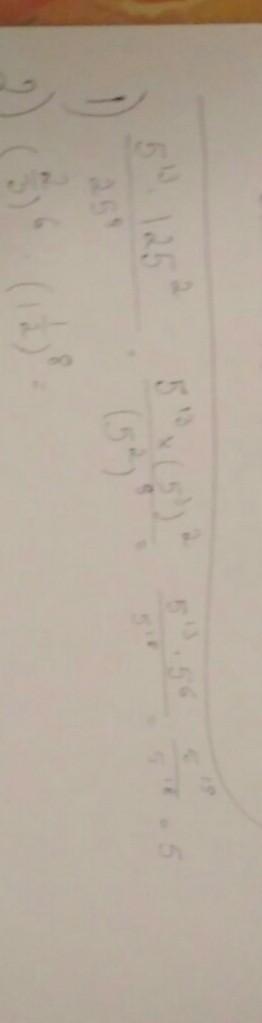 1) \frac{5^{13} \cdot 125^2}{25^9} = \frac{5^{13} \times (5^3)^2}{(5^2)^9} = \frac{5^{13} \cdot 5^6}{5^{18}} = \frac{5^{19}}{5^{18}} = 5
2) (\frac{2}{3})^6 \cdot (1\frac{1}{2})^8 =